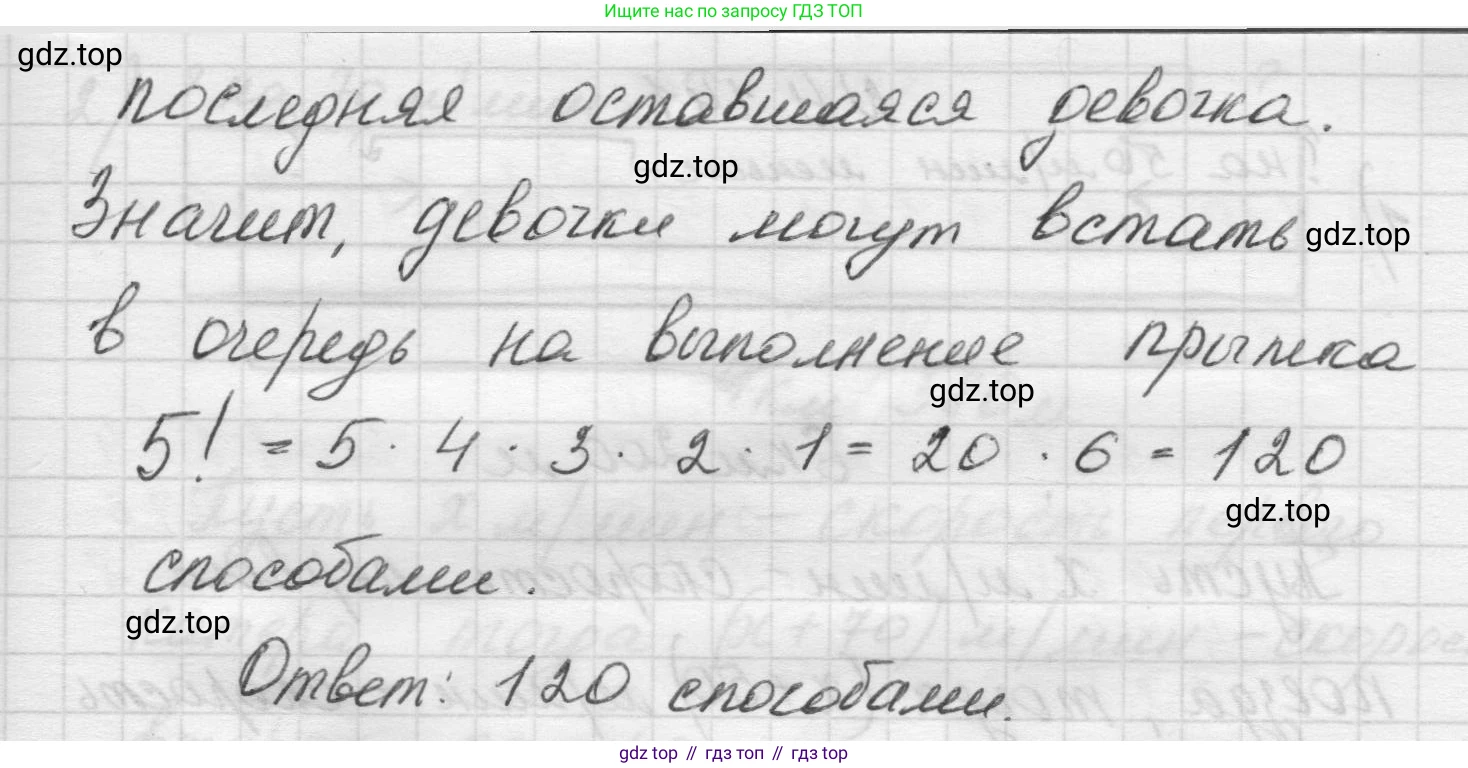 Ищите нас по запросу ГДЗ ТОП
gdz.top
последняя оставшаяся девочка.
gdz.top
Значит, девочки могут встать
gdz.top
в очередь на выполнение прыжка
gdz.top
5! = 5 · 4 · 3 · 2 · 1 = 20 · 6 = 120
gdz.top
способами.
gdz.top
Ответ: 120 способами.
gdz top // гдз топ // гдз top